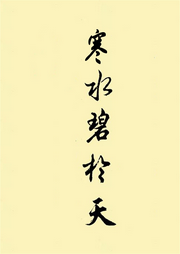 寒水碧於天